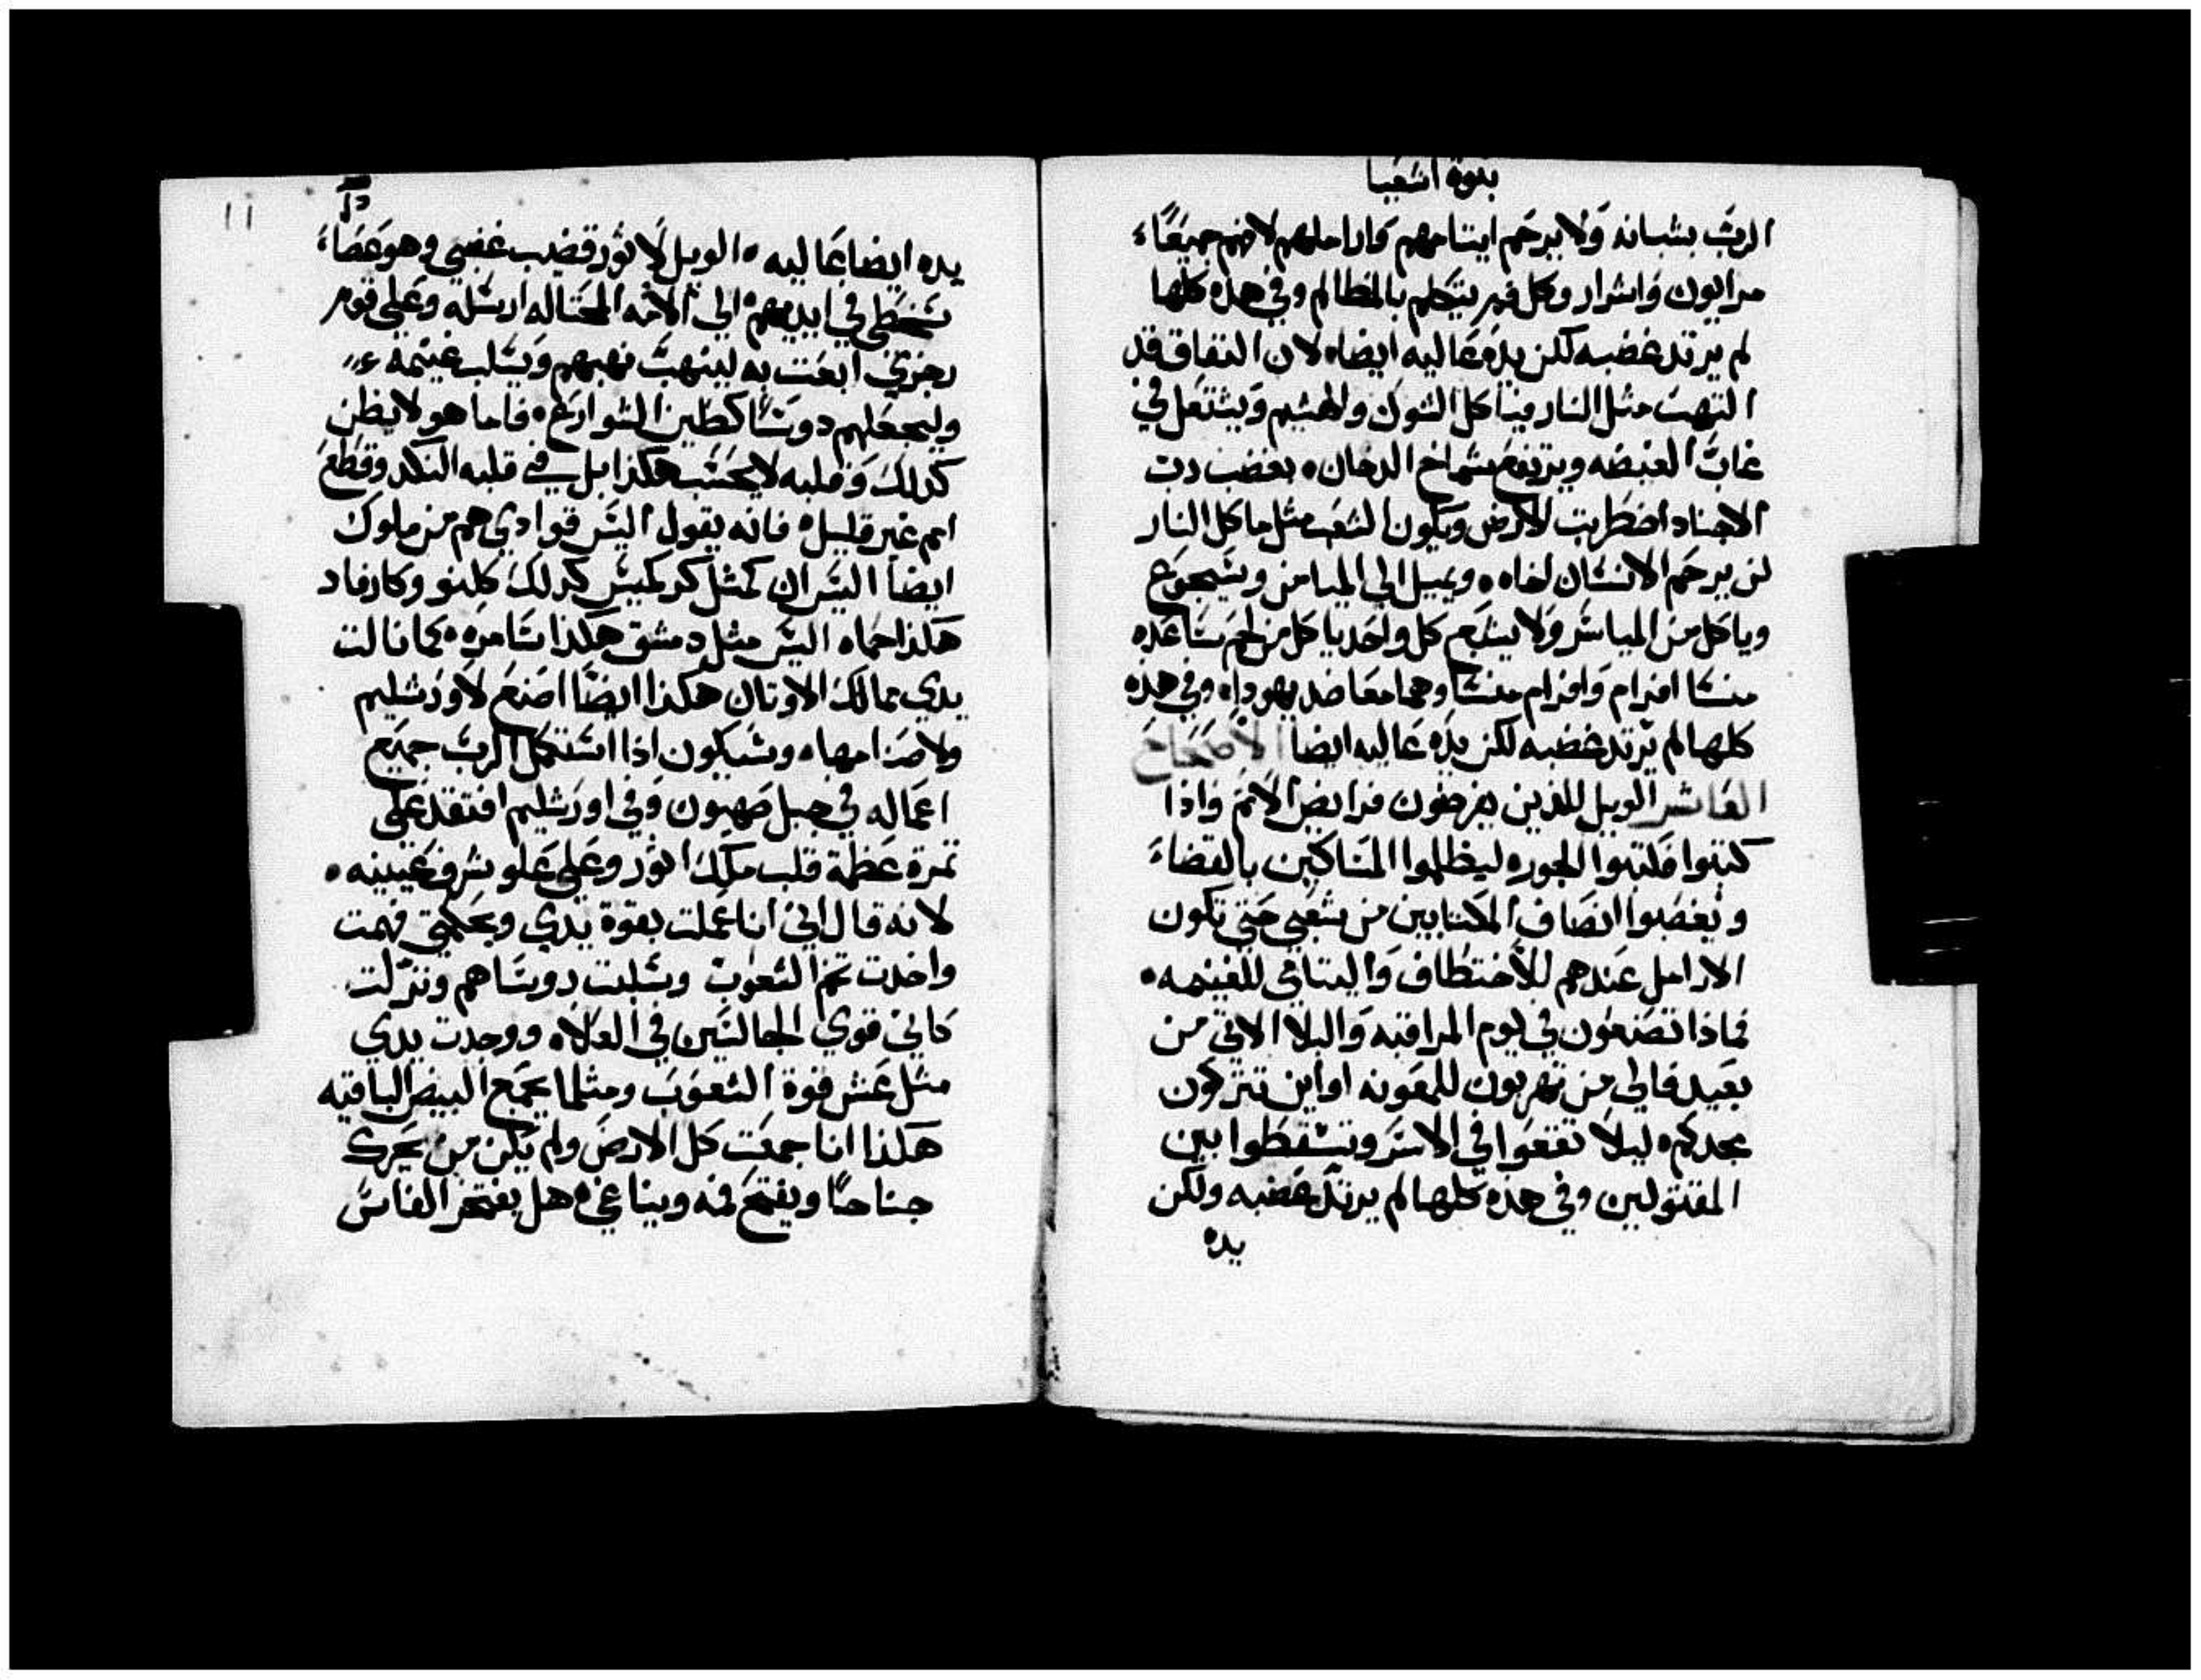 نبوة اشعيا
الرب بشبانه ولا يرحم ايتامهم واراملهم لانهم جميعًا
مرايون واشرار وكل فم يتكلم بالمظالم وفي هذه كلها
لم يرتد غضبه لكن يده عاليه ايضا لان النفاق قد
التهب مثل النار فياكل الشوك والهشيم ويشتعل في
غاب الغيضه ويرتفع بشماخ الدخان بغضب رب
الاجناد اضطربت الارض ويكون الشعب مثل ماكل النار
لن يرحم الانسان اخاه ويميل الى الميامن وسيجوع
وياكل من المياسر ولا يشبع كل واحد ياكل من لحم ساعده
منسا افرام وافرام منسا وهما معا ضد يهودا وفي هذه
كلها لم يرتد غضبه لكن يده عاليه ايضا الاصحاح
العاشر الويل للذين يفرضون فرايض الاثم واذا
كتبوا فكتبوا الجور ليظلموا المساكين بالقضاء
ويغصبوا انصاف المكتابين من شعبي حتى تكون
الارامل عندهم للاختطاف واليتامى للغنيمه
فماذا تصنعون في يوم المراقبه والبلا الاتي من
بعيد فالى من تهربون للمعونه او اين تتركون
مجدكم ليلا تقعوا في الاسر وتسقطوا بين
المقتولين وفي هذه كلها لم يرتد غضبه ولكن
يده
11
يده ايضا عاليه الويل لاثور قضيب غضبي وهو عصاء
سخطي في ايديهم الى الامه المحتاله ارسله وعلى قوم
رجزي ابعت به لينهب نهبهم ويسلب غنيمه
وليجعلهم دوسًا كطين الشوارع فاما هو لا يظن
كدلك وقلبه لا يحسب هكذا بل في قلبه النكد وقطع
امم غير قليل فانه يقول اليس قوادي هم من ملوك
ايضا اليس ان كمثل كركميش كدلك كلنو وكارفاد
هكذا حماه اليس مثل دمشق هكذا سامره كما نالت
يدي ممالك الاوتان هكذا ايضًا اصنع لاورشليم
ولاصنامها وسيكون اذا استكمل الرب جميع
اعماله في جبل صهيون وفي اورشليم افتقد على
تمرة عظمة قلب ملك اثور وعلى علو شرف عينيه
لانه قال اني انا عملت بقوة يدي وبحكمتي فهمت
واخدت تخم الشعوب وسلبت روساهم ونزلت
كاني قوي الجالسين في العلاه ووجدت يدي
مثل عش قوة الشعوب ومثلما يجمع البيض الباقيه
هكذا انا جمعت كل الارض ولم يكن من يحرك
جناحًا ويفتح فمه ويناغي هل يفتخر الفاس